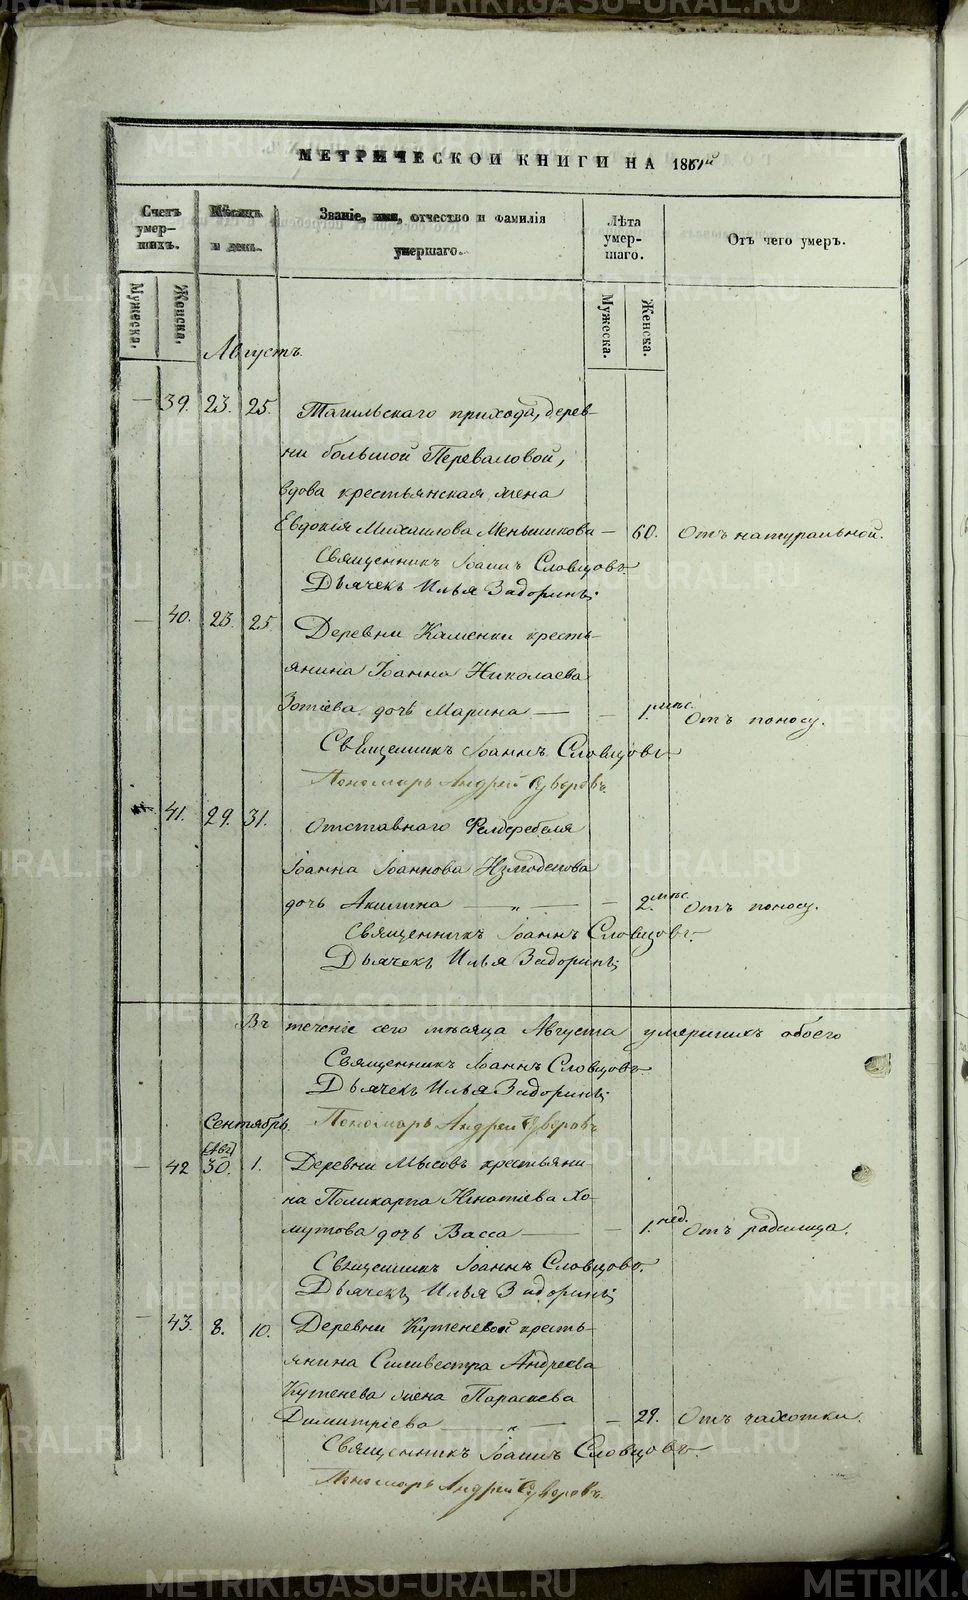 МЕТРИЧЕСКОЙ КНИГИ НА 1861й
Счетъ умер-шихъ.
Мужеска.
Женска.
Мѣсяцъ и день.
Званіе, имя, отчество и фамилія умершаго.
Лѣта умер-шаго.
Мужеска.
Женска.
Отъ чего умеръ.
Августъ.
— 39. 23. 25. Тагильскаго прихода, дерев-
ни большой Переваловой,
вдова крестьянская жена
Евдокія Михаилова Меньшикова — 60. Отъ натуральной.
Священникъ Іоаннъ Словцовъ.
Дьячекъ Илья Задоринъ;
— 40. 23. 25. Деревни Каменки кресть-
янина Іоанна Николаева
Зотіева дочь Марина — — 1. мѣс. Отъ поносу.
Священникъ Іоаннъ Словцовъ.
Пономарь Андрей Суворовъ.
41. 29. 31. Отставнаго Фелдфебеля
Іоанна Іоаннова Измоденова
дочь Акилина — „ — — 2. мѣс. Отъ поносу.
Священникъ Іоаннъ Словцовъ.
Дьячекъ Илья Задоринъ;
Въ теченіе сего мѣсяца Августа умершихъ обоего
Священникъ Іоаннъ Словцовъ.
Дьячекъ Илья Задоринъ;
Пономарь Андрей Суворовъ
Сентябрь.
(Авг)
— 42 30. 1. Деревни Мысовъ крестьяни-
на Поликарпа Игнатіева Хо-
мутова дочь Васса — — 1. нед. Отъ родимца.
Священникъ Іоаннъ Словцовъ.
Дьячекъ Илья Задоринъ;
— 43. 8. 10. Деревни Кутеневой кресть-
янина Силивестра Андреева
Кутенева жена Параскева
Димитріева — „ — — 29. Отъ чахотки.
Священникъ Іоаннъ Словцовъ.
Пономарь Андрей Суворовъ.
METRIKI.GASO-URAL.RU